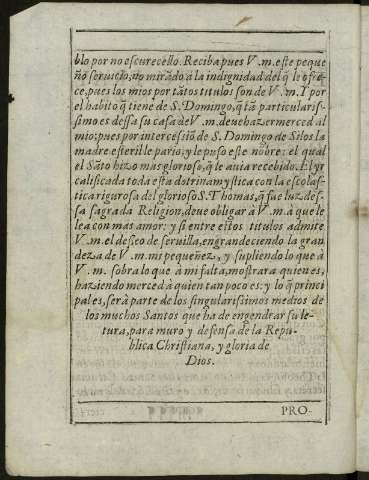 blo por no escurecello. Reciba pues V. m. este peque
ño seruicio, no mirãdo a la indignidad del q̃ le ofre-
ce, pues los mios por tãtos titulos son de V. m. Y por
el habito q̃ tiene de S. Domingo, q̃ tã particularis-
simo es dessa su casa de V. m. deue hazer merced al
mio: pues por intercessiõ de S. Domingo de Silos la
madre esteril le pario: y le puso este nõbre: el qual
el Sãto hizo mas glorioso, q̃ le auia recebido. El yr
calificada toda esta dotrina mystica con la escolas-
tica rigurosa del glorioso S. Thomas, q̃ fue luz des-
sa sagrada Religion, deue obligar à V. m. à que le
lea con mas amor: y si entre estos titulos admite
V. m. el desseo de seruilla, engrandeciendo la gran
deza de V. m. mi pequeñez, y supliendo lo que à
V. m. sobra lo que à mi falta, mostrara quien es,
haziendo merced à quien tan poco es: y lo q̃ princi
pal es, serà parte de los singularissimos medios de
los muchos Santos que ha de engendrar su le-
tura, para muro y defensa de la Repu-
blica Christiana, y gloria de
Dios.
PRO-